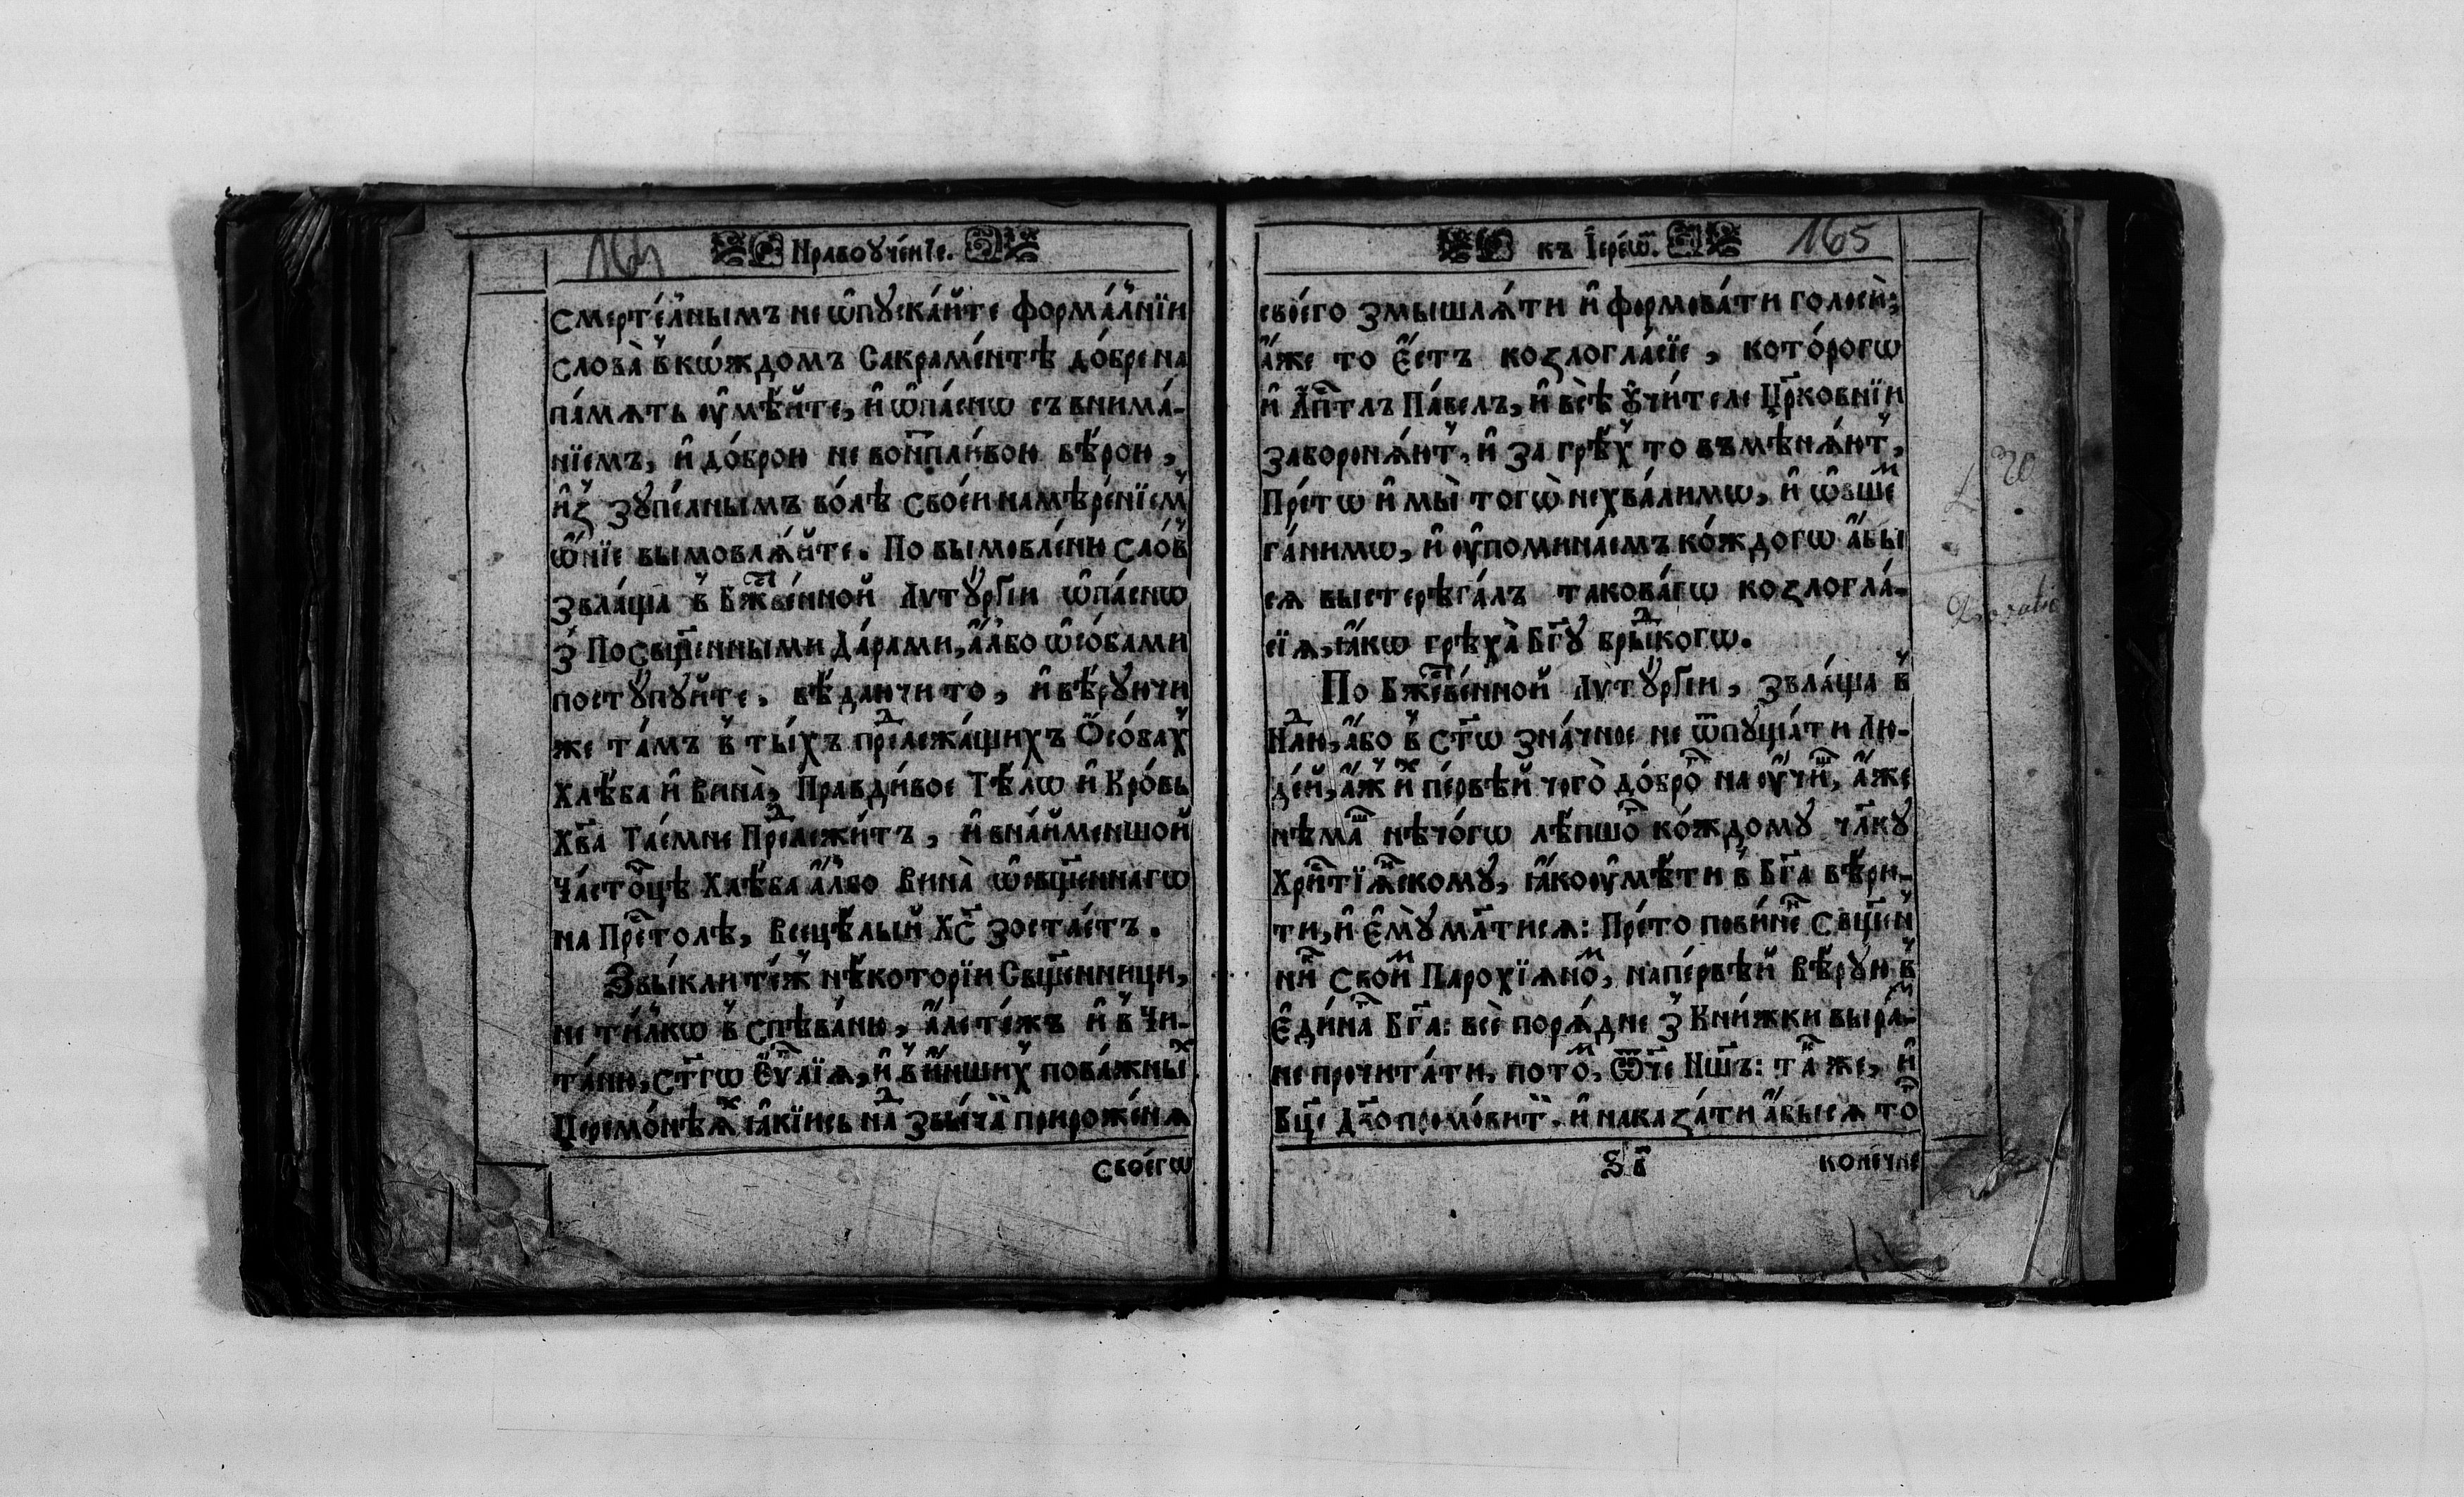 164 Нравоꙋче́нїе.
Смерте́лнымъ не ѡ҆пꙋска́йте форма́лнїи
слова̀ в̾ кѡ́ждомъ Сакраме́нтѣ до́бре на
па́мѧть ᲂу҆мѣ́йте, и҆ ѡ҆па́сно съ внима́-
нїемъ, и҆ до́брою не вонпли́вою вѣ́рою,
и҆ꙁ̾ зꙋпе́лнымъ во́лѣ Своеи намѣ́ренїем̾
ѡ҆́нїе вымовлѧ́йте. По вымовле́ню Сло́в̾
звла́ща в̾ Бж҃ве́нной Лѵтꙋргі́и ѡ҆па́сно
з̾ Посщ҃е́нными Да́рами, а҆́лбо ѡ҆со́бами
постꙋпꙋ́йте, вѣ́даючи то, и҆ вѣ́рꙋючи
же та́мъ в̾ ты́хъ предлежа́щихъ Ѻ҆со́бах̾
Хлѣ́ба и҆ Вина̀, Правди́вое Тѣ́лѡ и҆ Кро́вь
Хв҃а Тае́мне Предлежи́тъ, и҆ в на́йменшой
Ча́стоцѣ Хлѣ́ба а҆́лбо Вина̀ ѡ҆свщ҃еннагѡ
на Прⷭ҇толѣ, Всецѣ́лый Хс҃ зоста́етъ.
Звы́кли те́ж̾ нѣ́которїи Свщ҃енници,
не ти́лкѡ в̾ спѣва́ню, а҆́ле те́жъ и҆ в̾ Чи-
та́ню, ст҃гѡ Е҆ѵ҃лїѧ, и҆ в̾ и҆́нших̾ пова́жныⷯ
Церемо́нѣѧⷯ ꙗ҆кїись наⷣ звы́чаⷮ прироже́нѧ
своегѡ
къ І҆ере́ѡⷨ. 165
своего змышлѧ́ти и҆ формова́ти голоси;
а҆́же то є҆́стъ коꙁлогла́сїе, кото́рогѡ
и҆ А҆пⷭ҇тлъ Па́велъ, и҆ всѣ Ꙋ҆чи́теле Цр҃ковнїи
заборонѧ́ют̾, и҆ за грѣ́х̾ то въмѣнѧ́ют̾,
Пре́тѡ и҆ мы̀ тогѡ̀ не хва́лимѡ, и҆ ѡ҆вшеⷨ
га́нимѡ, и҆ ᲂу҆помина́емъ ко́ждогѡ а҆́бы
сѧ выстерѣга́лъ такова́гѡ коꙁлогла́-
сїѧ, ꙗ҆́кѡ грѣха̀ Бг҃ꙋ бриⷣкогѡ.
По Бжⷭ҇тве́нной Лѵтꙋргі́и, звла́ща в̾
Неⷣлю, а҆́бо в̾ Ст҃ѡ зна́чное не ѿпꙋща́ти лю-
де́й, а҆́ж̾ иⷯ пе́рвѣй чого̀ до́броⷢ наᲂу҆чиⷮ, а҆́же
нѣмаⷲ нѣчо́гѡ лѣ́пшоⷢ ко́ждомꙋ чл҃кꙋ
Хрⷭ҇тїѧⷩскомꙋ, ꙗ҆́ко ᲂу҆мѣ́ти в̾ Бг҃а вѣ́ри-
ти, и҆ Є҆мꙋ̀ мл҃тисѧ: Пре́то пови́неⷩ Свщ҃ен̾
ниⷦ Своиⷨ Парохїѧноⷨ, напе́рвѣй Вѣ́рꙋю в̾
Є҆ди́наⷢ Бг҃а: всѐ порѧ́дне з̾ Кни́жки выра́ⷥ-
не прочита́ти, потоⷨ, Ѿч҃е Нш҃ъ: таⷦже, и҆
Бц҃е Дв҃о промо́вит̾, и҆ накаꙁа́ти а҆́бы сѧ тоⷢ
Ѕ в҃
коне́чне